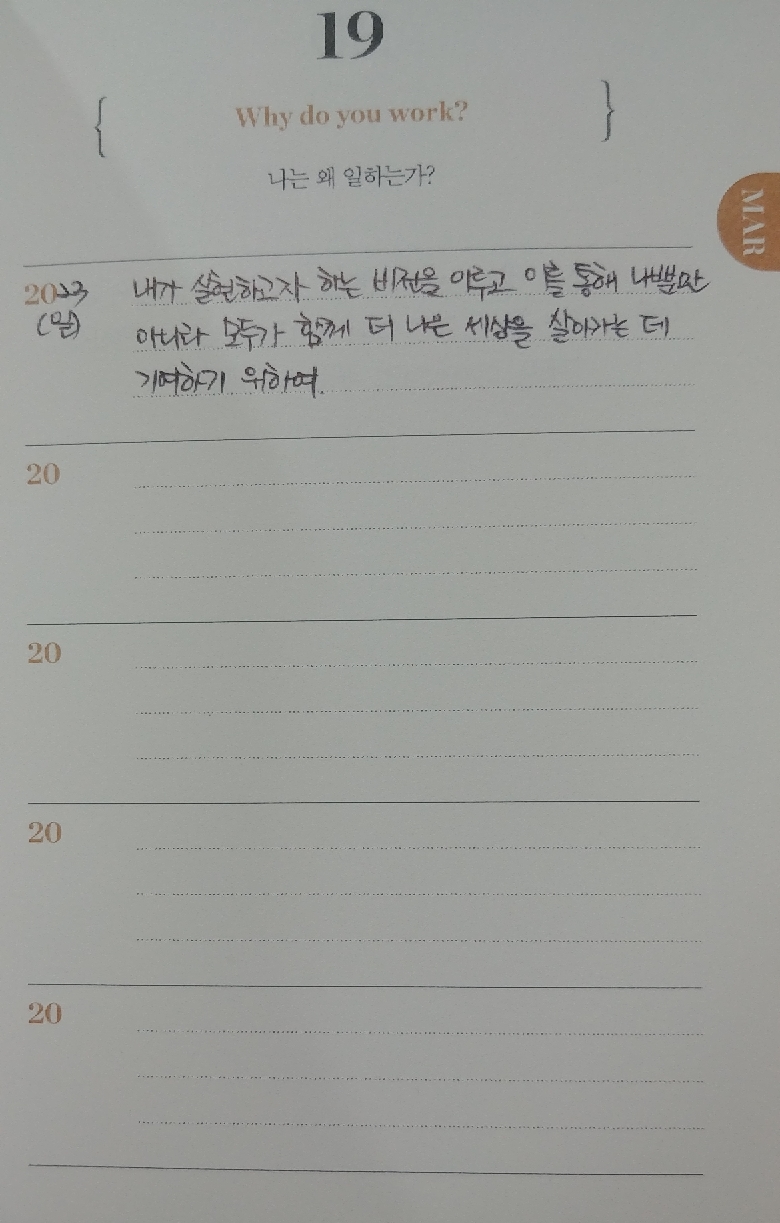 19
{ Why do you work? }
나는 왜 일하는가?
MAR
2023 내가 실현하고자 하는 비전을 이루고 이를 통해 나뿐만
(일) 아니라 모두가 함께 더 나은 세상을 살아가는 데
기여하기 위하여.
20
20
20
20